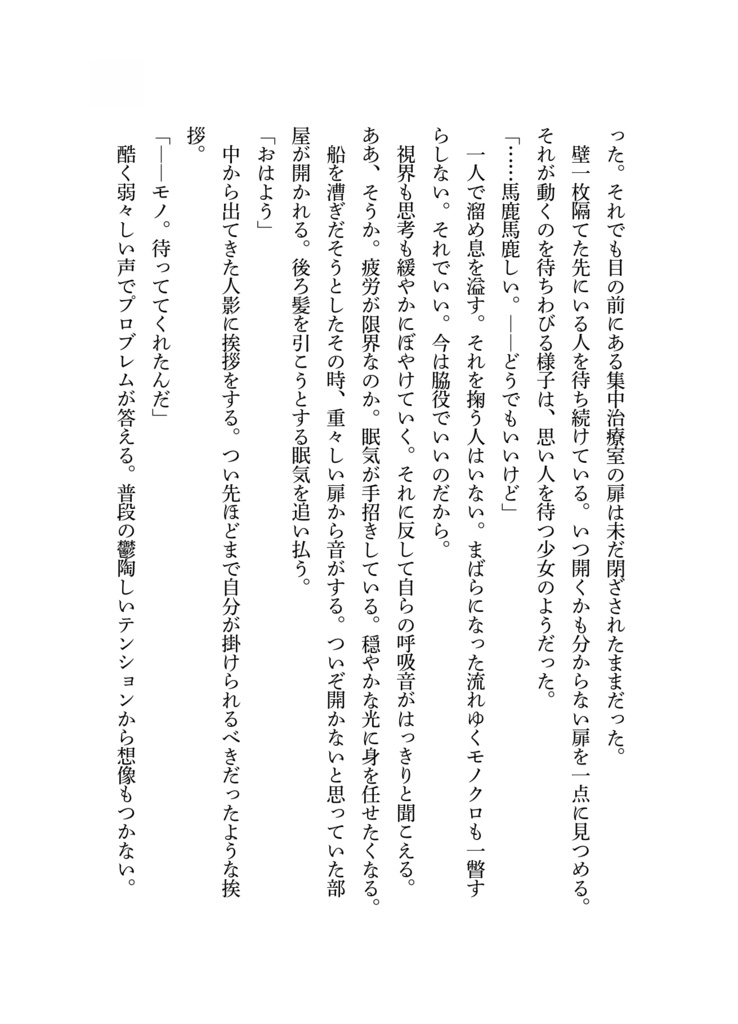 った。それでも目の前にある集中治療室の扉は未だ閉ざされたままだった。
壁一枚隔てた先にいる人を待ち続けている。いつ開くかも分からない扉を一点に見つめる。
それが動くのを待ちわびる様子は、思い人を待つ少女のようだった。
「……馬鹿馬鹿しい。――どうでもいいけど」
一人で溜め息を溢す。それを掬う人はいない。まばらになった流れゆくモノクロも一瞥す
らしない。それでいい。今は脇役でいいのだから。
視界も思考も緩やかにぼやけていく。それに反して自らの呼吸音がはっきりと聞こえる。
ああ、そうか。疲労が限界なのか。眠気が手招きしている。穏やかな光に身を任せたくなる。
船を漕ぎだそうとしたその時、重々しい扉から音がする。ついぞ開かないと思っていた部
屋が開かれる。後ろ髪を引こうとする眠気を追い払う。
「おはよう」
中から出てきた人影に挨拶をする。つい先ほどまで自分が掛けられるべきだったような挨
拶。
「――モノ。待っててくれたんだ」
酷く弱々しい声でプロブレムが答える。普段の鬱陶しいテンションから想像もつかない。